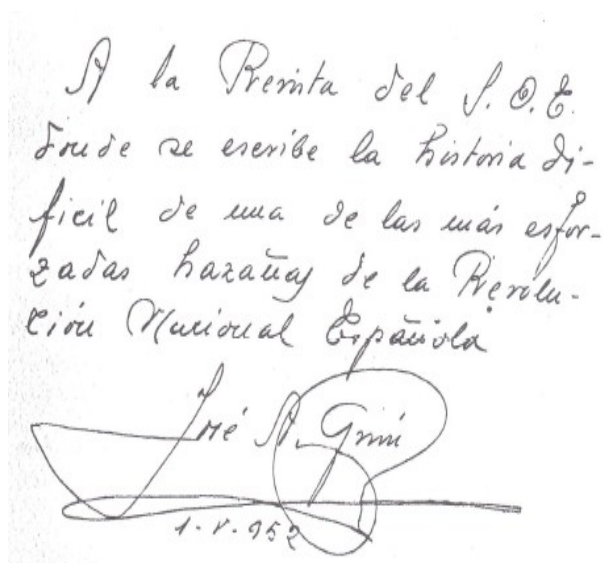 A la Revista del S.O.E.
donde se escribe la historia di-
ficil de una de las más esfor-
zadas hazañas de la Revolu-
ción Nacional Española
José A. Girón
1-V-952